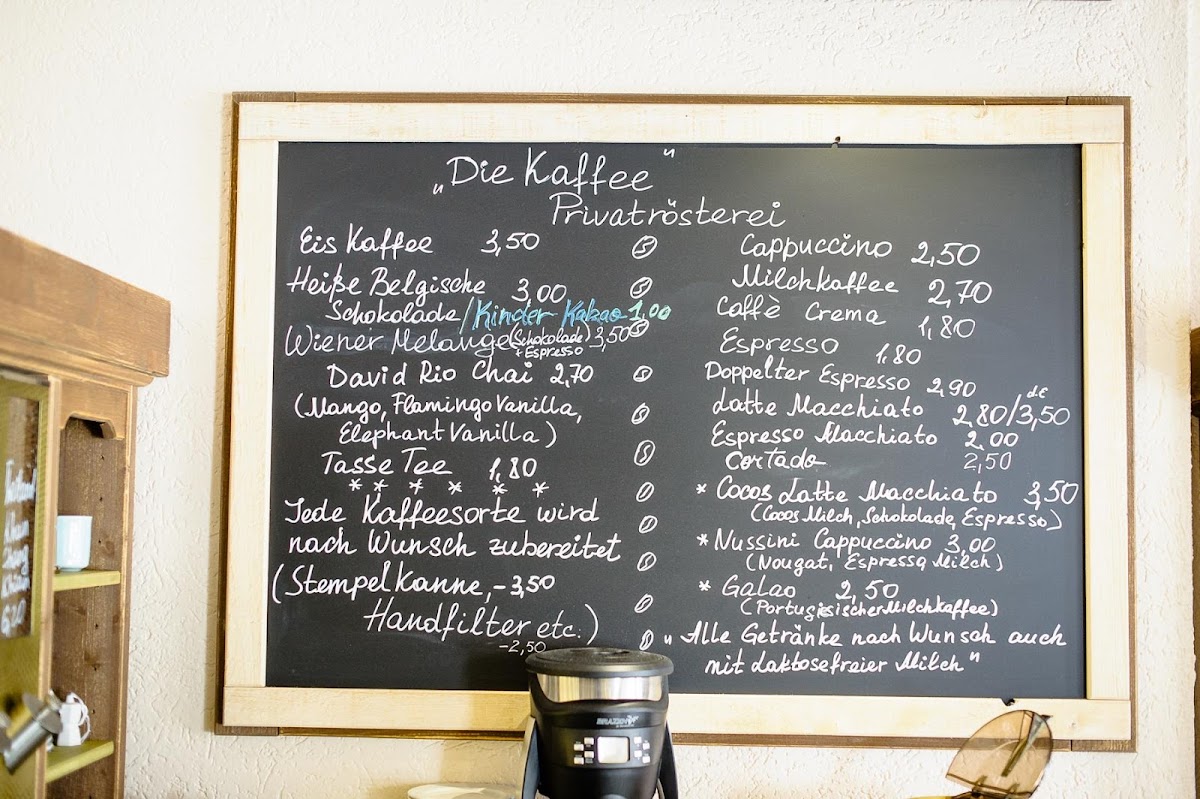 „Die Kaffee"
Privatrösterei
Eis Kaffee 3,50
Heiße Belgische 3,00
Schokolade/Kinder Kakao 1,00
Wiener Melange (Schokolade) 3,50
+ Espresso
David Rio Chai 2,70
(Mango, Flamingo Vanilla,
Elephant Vanilla)
Tasse Tee 1,80
* * * * * *
Jede Kaffeesorte wird
nach Wunsch zubereitet
(Stempelkanne, - 3,50
Handfilter etc.)
- 2,50
Cappuccino 2,50
Milchkaffee 2,70
Caffè Crema 1,80
Espresso 1,80
Doppelter Espresso 2,90
Latte Macchiato 2,80/3,50
Espresso Macchiato 2,00
Cortado 2,50
* Cocos Latte Macchiato 3,50
(Cocos Milch, Schokolade, Espresso)
* Nussini Cappuccino 3,00
(Nougat, Espresso, Milch)
* Galao 2,50
(Portugisischer Milchkaffee)
„Alle Getränke nach Wunsch auch
mit Laktosefreier Milch"